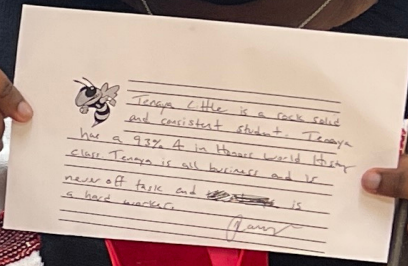 Tenaya Little is a rock solid
and consistent student. Tenaya
has a 93% A in Honors World History
class. Tenaya is all business and is
never off task and is
a hard worker.